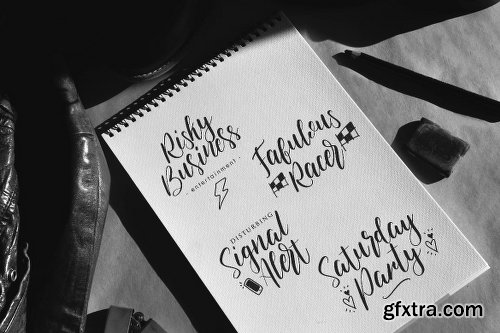 Risky
Business
- entertainment -
Fabulous
Racer
DISTURBING
Signal
Alert
Saturday
Party
gfxtra.com